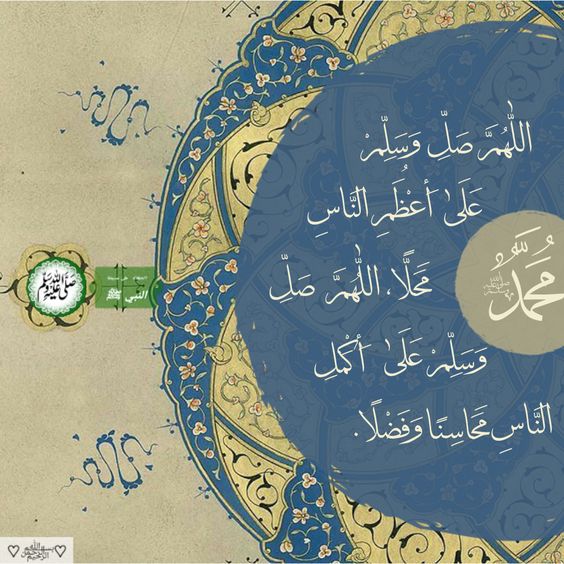 اللّٰهُمَّ صَلِّ وَسَلِّمْ
عَلَىٰ أَعْظَمِ النَّاسِ
مَحَلًّا، اللّٰهُمَّ صَلِّ
وَسَلِّمْ عَلَىٰ أَكْمَلِ
النَّاسِ مَحَاسِنًا وَفَضْلًا.
مُحَمَّدٌ ﷺ
صَلَّى اللّٰهُ عَلَيْهِ وَسَلَّمَ
النبي ﷺ
♡ بسم الله الرحمن الرحيم ♡